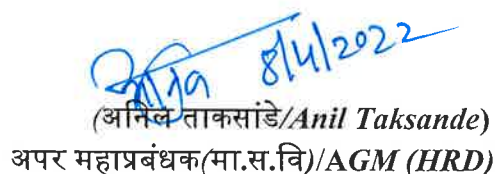 अनिल 8/4/2022
(अनिल ताकसांडे/Anil Taksande)
अपर महाप्रबंधक(मा.स.वि)/AGM (HRD)